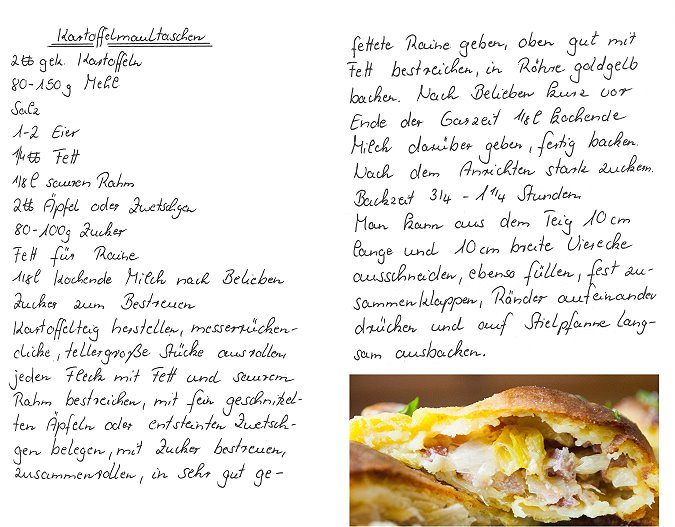 Kartoffelmaultaschen
2 ℔ gek. Kartoffeln
80-150g Mehl
Salz
1-2 Eier
1/4 ℔ Fett
1/8 l sauren Rahm
2 ℔ Äpfel oder Zwetschgen
80-100g Zucker
Fett für Raine
1/8 l kochende Milch nach Belieben
Zucker zum Bestreuen
Kartoffelteig herstellen, messerrücken-
dicke, tellergroße Stücke ausrollen,
jeden Fleck mit Fett und saurem
Rahm bestreichen, mit fein geschnitzel-
ten Äpfeln oder entsteinten Zwetsch-
gen belegen, mit Zucker bestreuen,
zusammenrollen, in sehr gut ge-
fettete Raine geben, oben gut mit
Fett bestreichen, in Röhre goldgelb
backen. Nach Belieben kurz vor
Ende der Garzeit 1/8 l kochende
Milch darüber geben, fertig backen.
Nach dem Anrichten stark zuckern.
Backzeit 3/4 - 1 1/4 Stunden
Man kann aus dem Teig 10 cm
lange und 10 cm breite Vierecke
ausschneiden, ebenso füllen, fest zu-
sammenklappen, Ränder aufeinander
drücken und auf Stielpfanne lang-
sam ausbacken.